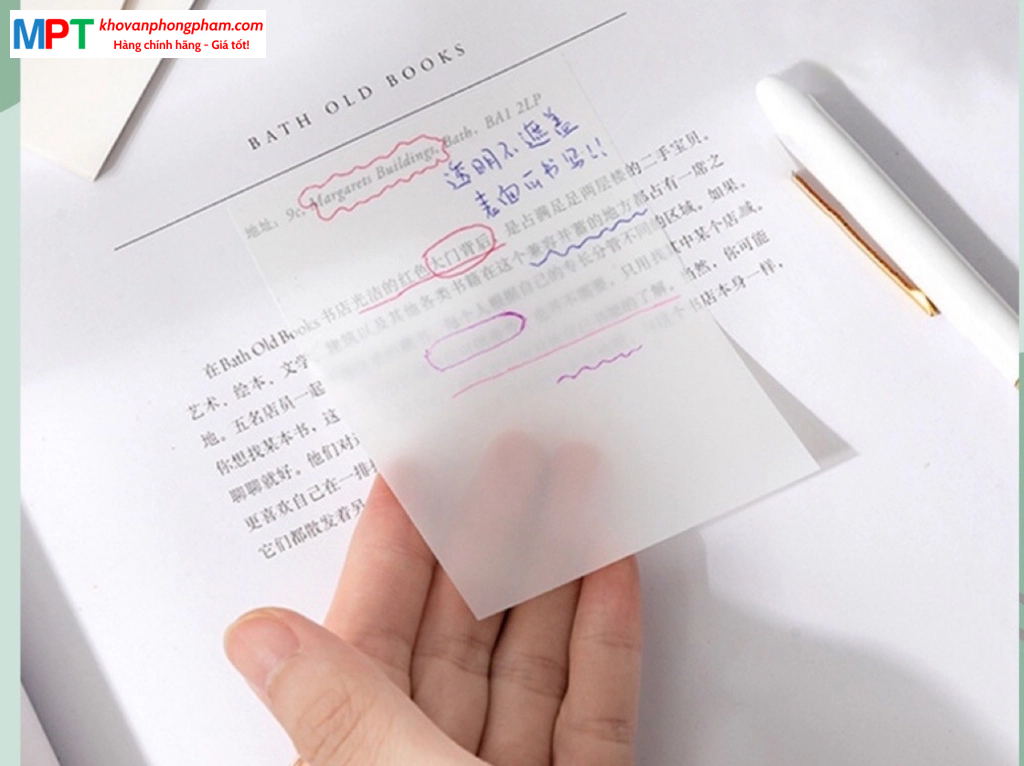 MPT khovanphongpham.com
Hàng chính hãng - Giá tốt!
BATH OLD BOOKS
地址：9c, Margarets Buildings, Bath, BA1 2LP
透明不遮盖
表面可书写!!
在Bath Old Books书店光洁的红色大门背后，是占满足足两层楼的二手宝贝。
艺术、绘本、文学、建筑以及其他各类书籍在这个兼容并蓄的地方都占有一席之
地。五名店员一起 每个人根据自己的专长分管不同的区域。如果
你想找某本书，这 只用找 中某个店
聊聊就好。他们对 的了解。当然，你可能
更喜欢自己在一排 书店本身一样，
它们都散发着